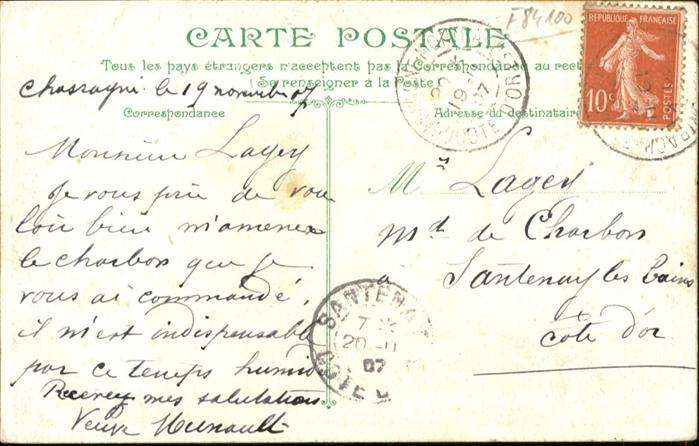 F84100
CARTE POSTALE
Tous les pays étrangers n'acceptent pas la Correspondance au recto
(Se renseigner à la Poste)
Chassagne le 19 novembre 07
Correspondance
Adresse du destinataire
RÉPUBLIQUE FRANÇAISE
10c
POSTES
CÔTE-D'OR
Monsieur Lagey
Je vous prie de vou
loir bien m'amener
le charbon que je
vous ai commandé,
il m'est indispensable
par ce temps humide
Recevez mes salutations
Veuve Hunault
Mr Lagey
Md de Charbon
à Santenay les bains
côte d'or
SANTENAY
7
20-11
07
CÔTE D'OR